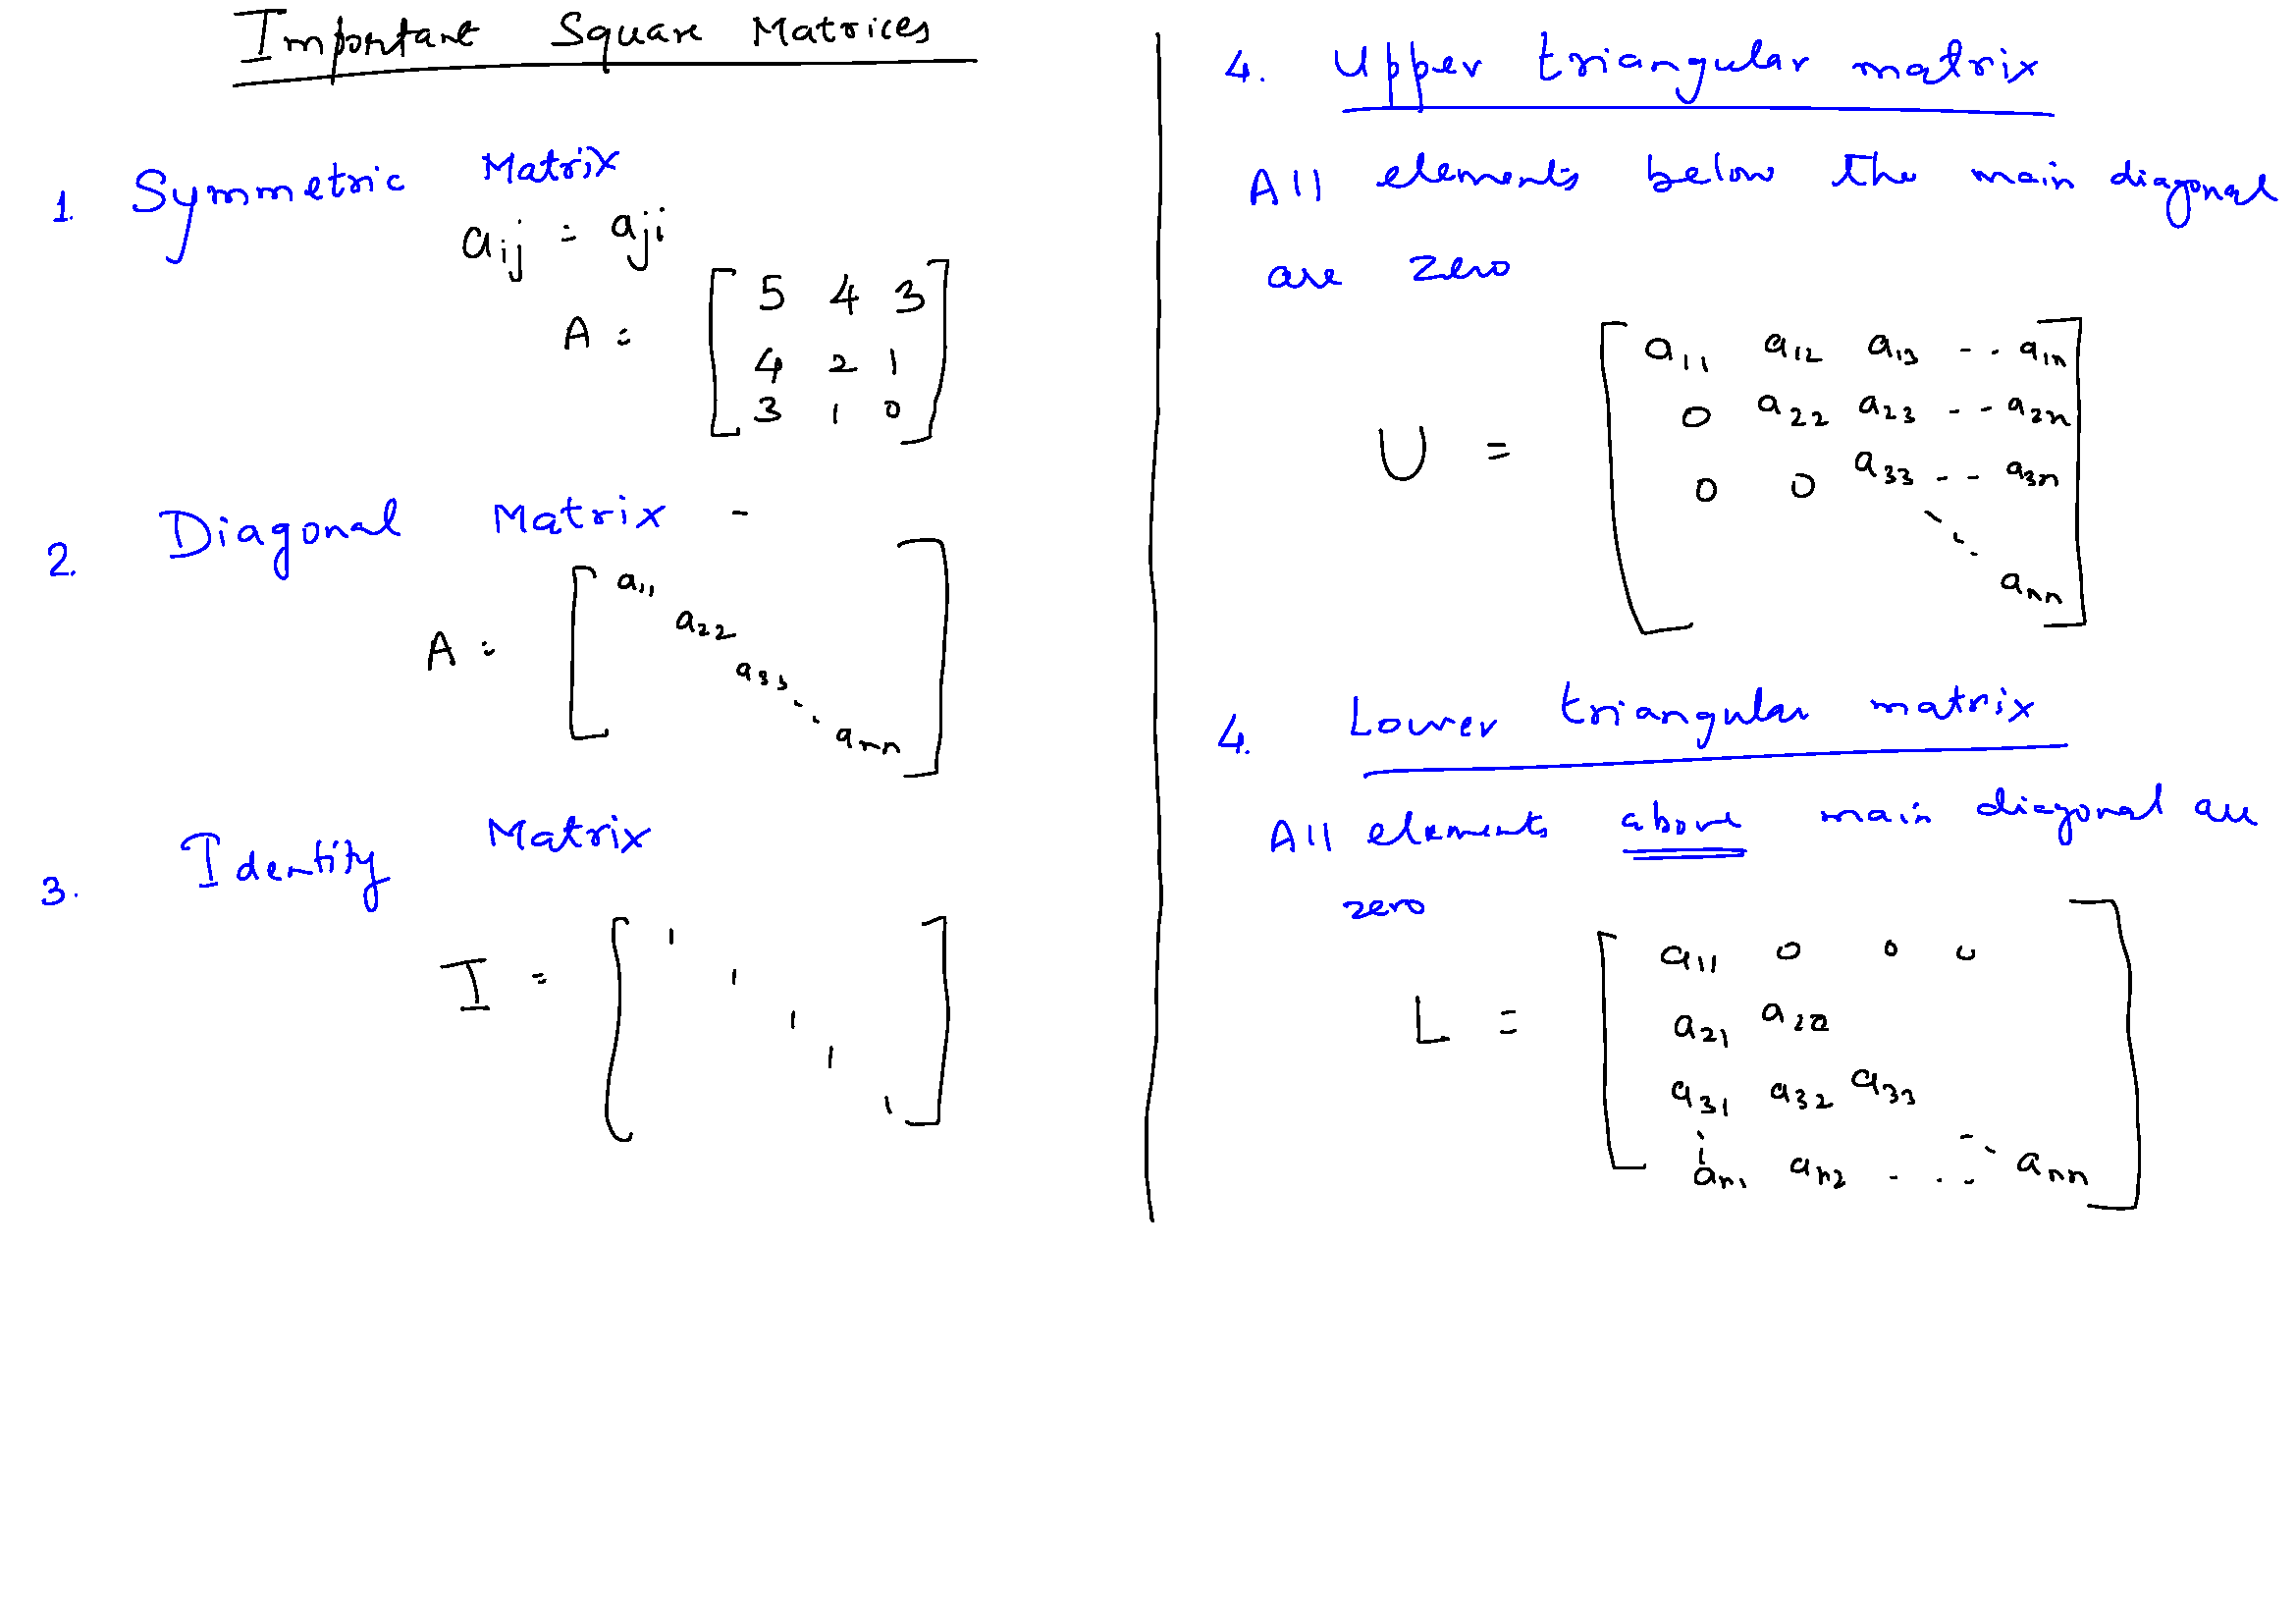 Important Square Matrices
1. Symmetric Matrix
aij = aji
A = [ 5 4 3
4 2 1
3 1 0 ]
2. Diagonal Matrix -
A = [ a11
a22
a33
⋱ ann ]
3. Identity Matrix
I = [ 1
1
1
1
1 ]
4. Upper triangular matrix
All elements below the main diagonal
are zero
U = [ a11 a12 a13 - .. a1n
0 a22 a23 - - a2n
0 0 a33 - - a3n
⋱
ann ]
4. Lower triangular matrix
All elements above main diagonal are
zero
L = [ a11 0 0 0
a21 a22
a31 a32 a33
⋮ ⋱
an1 an2 . . . . ann ]